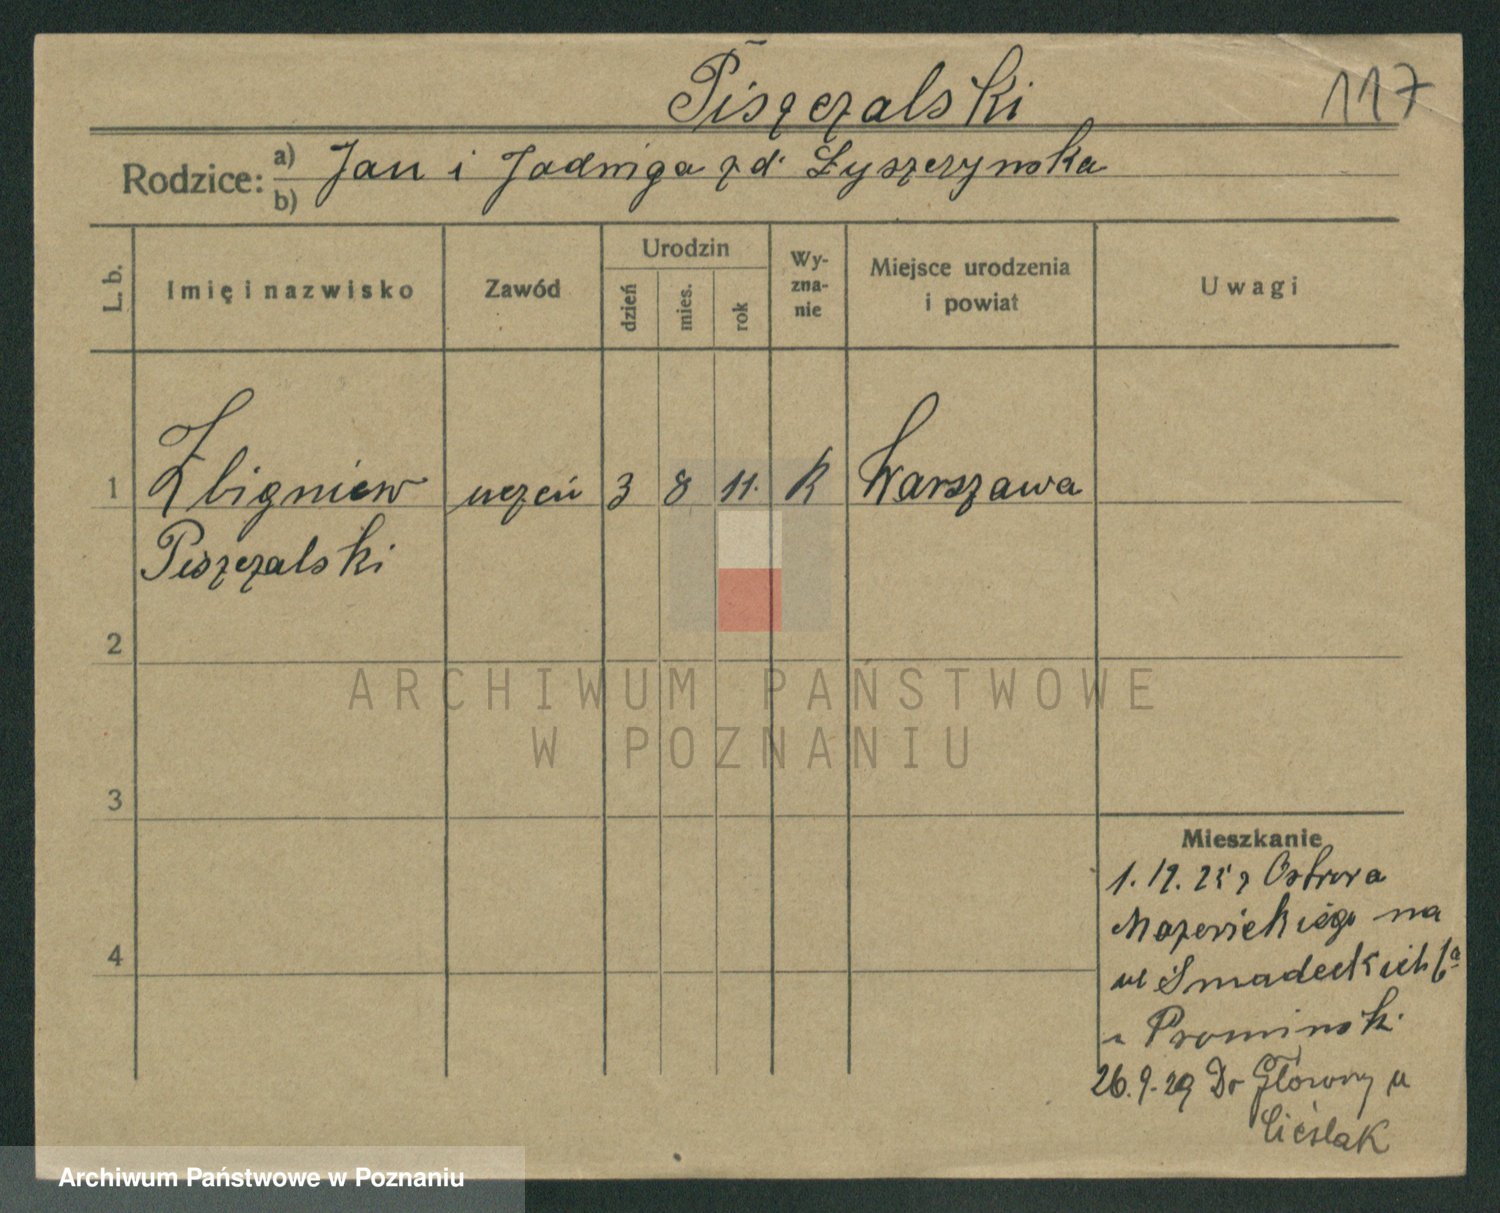 Piszczalski
117
Rodzice: a) Jan i Jadwiga z d. Łyszczynska
b)
L. b.
Imię i nazwisko
Zawód
Urodzin
dzień
mies.
rok
Wy-
zna-
nie
Miejsce urodzenia
i powiat
Uwagi
1 Zbigniew uczeń 3 8 11. K Warszawa
Piszczalski
2
ARCHIWUM PAŃSTWOWE
W POZNANIU
3
Mieszkanie
1. 12. 25 z Ostrowa
Mazowieckiego na
ul Śniadeckich 6a
u Prominski
4
26.9.29 Do Główny u
Cieślak
Archiwum Państwowe w Poznaniu